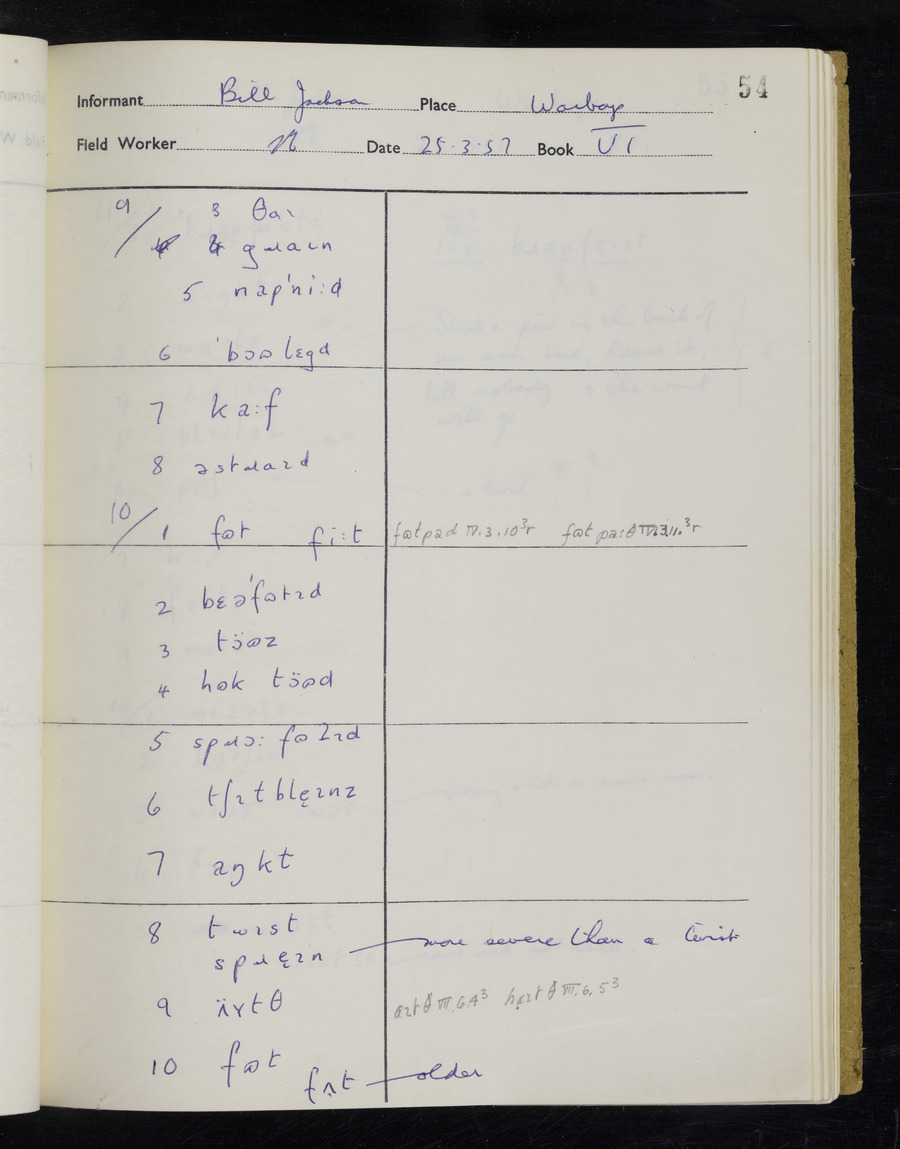 54
Informant Bill Jackson Place Warboys
Field Worker N Date 25.3.57 Book VI
9/ 3 θaɪ
4 gɹaɪn
5 nap'niːd
6 'bɔɷlɛgd
7 kaːf
8 əstɹaɪd
10/ 1 fɷt fiːt fɷtpad IV.3.10³r fɷt paːθ IV.3.11.³r
2 bɛə'fɷtɪd
3 tɔ̈ɷz
4 hɷk tɔ̈ɷd
5 spɹɔː fɷtɪd
6 tʃɪtblęɪnz
7 aŋkɫ
8 twɪst
spɹęɪn more severe than a twist
9 äɪtθ aɪtθ VII.6.4³ hęɪtθ VII.6.5³
10 fɷt fʌ̨t older